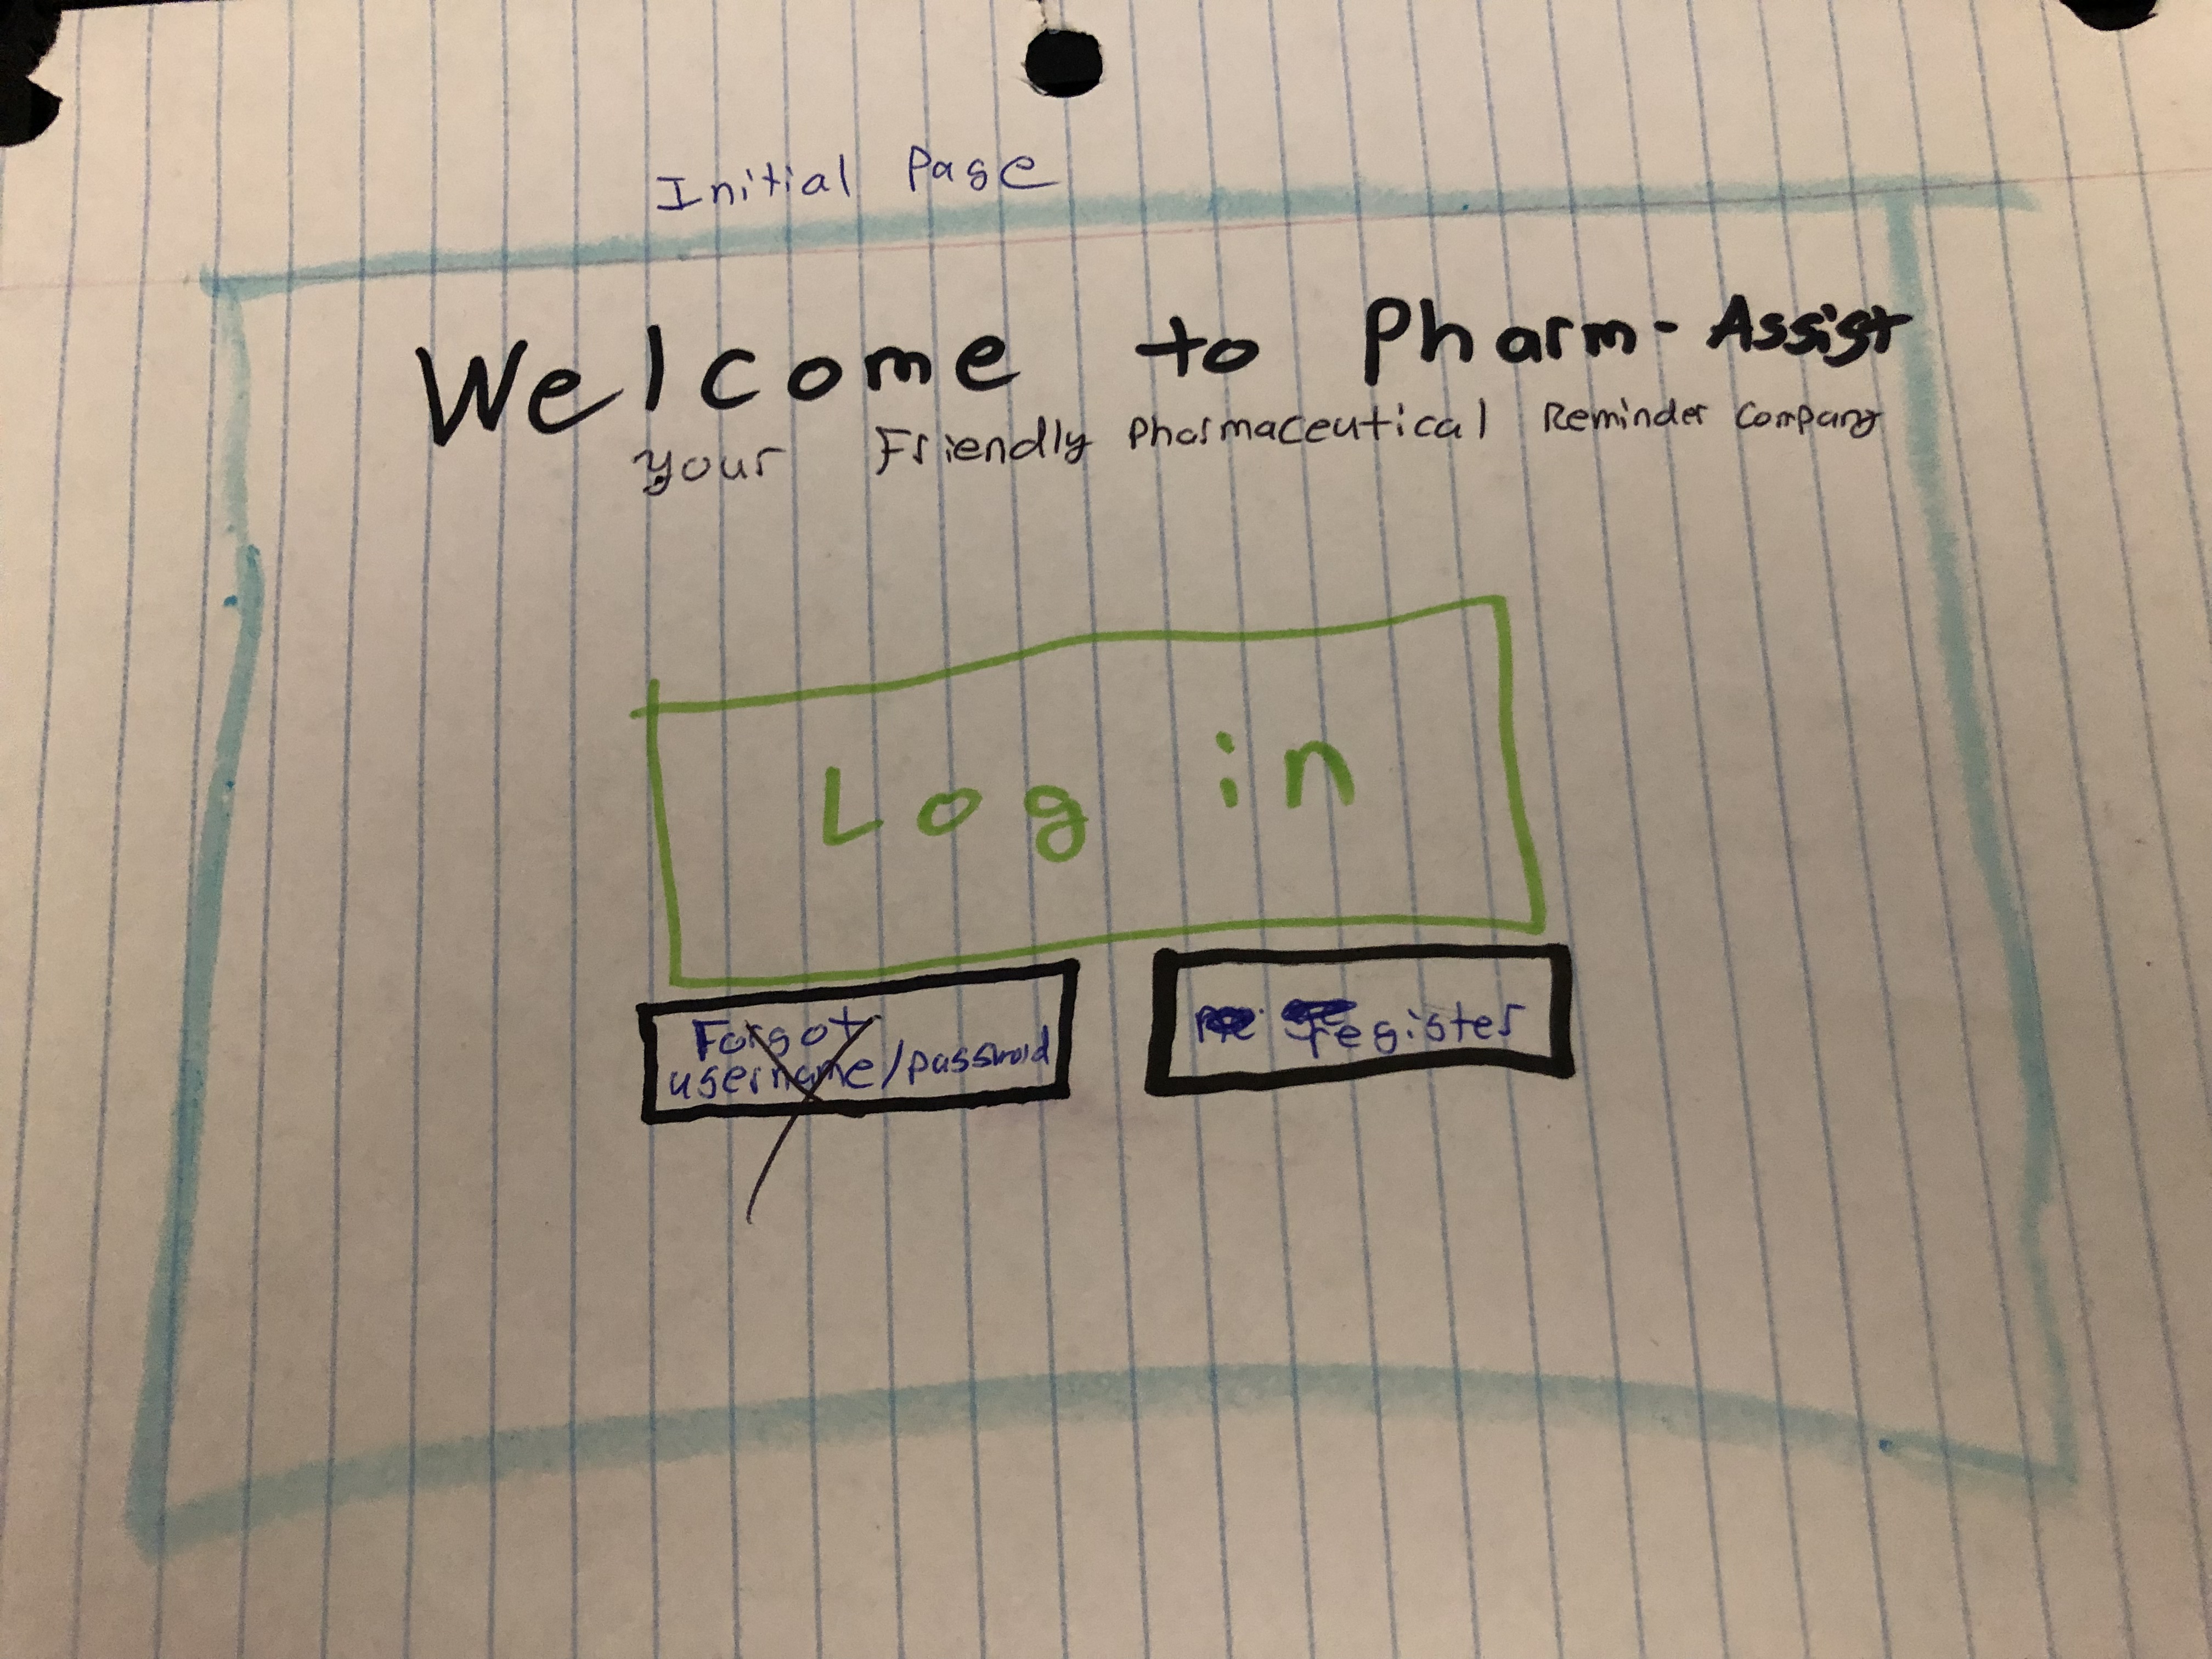 Initial Page
Welcome to Pharm-Assist
your Friendly Pharmaceutical Reminder Company
Log in
Forgot
username/password
register